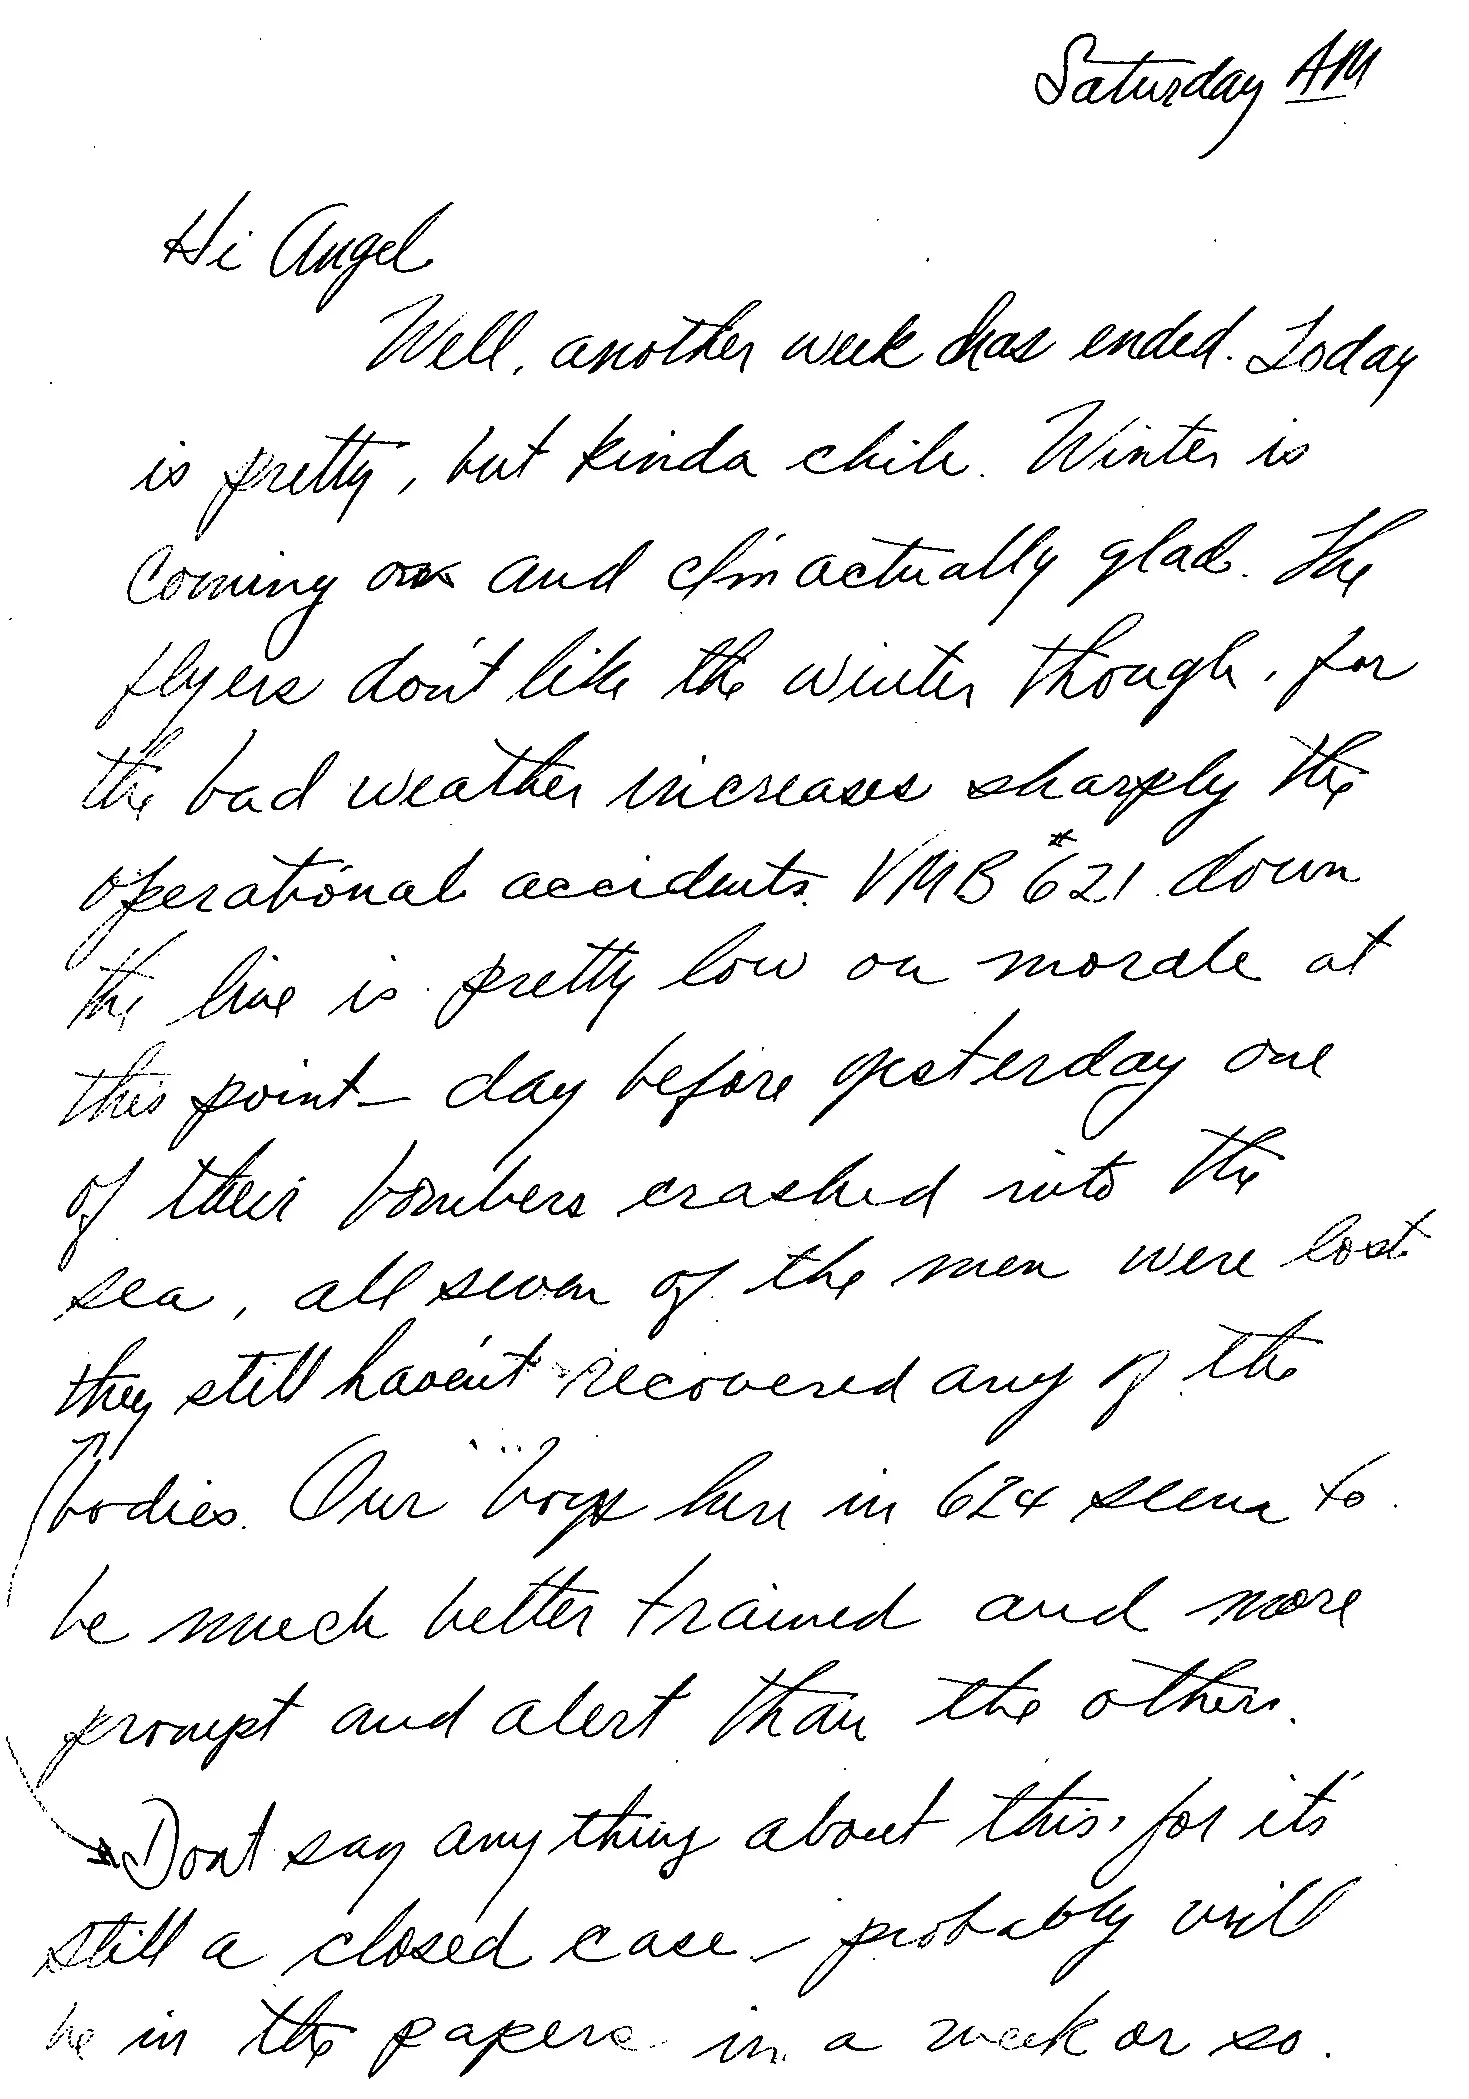 Saturday AM
Hi Angel
Well, another week has ended. Today
is pretty, but kinda chile. Winter is
coming on and I'm actually glad. The
flyers don't like the winter though, for
the bad weather increases sharply the
operational accidents. VMB #621 down
the line is pretty low on morale at
this point - day before yesterday one
of their bombers crashed into the
sea, all seven of the men were lost
they still haven't recovered any of the
bodies. Our boys here in 624 seem to
be much better trained and more
prompt and alert than the others.
Dont say anything about this, for it's
still a closed case - probably will
be in the papers in a week or so.